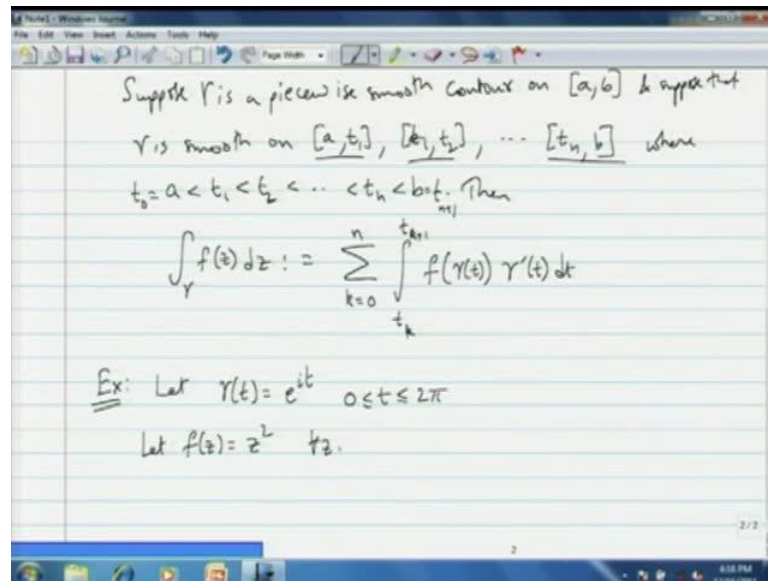 Note1 - Windows Journal
File Edit View Insert Actions Tools Help
Page Width
Suppose γ is a piecewise smooth contour on [a,b] & suppose that
γ is smooth on [a,t₁], [t₁,t₂], ... [tₙ,b] where
t₀ = a < t₁ < t₂ < .. < tₙ < b = tₙ₊₁. Then
∫_γ f(z) dz := Σ_{k=0}^{n} ∫_{t_k}^{t_{k+1}} f(γ(t)) γ'(t) dt
Ex: Let γ(t) = e^{it} 0 ≤ t ≤ 2π
Let f(z) = z² ∀z.
2/2
2
6:58 PM